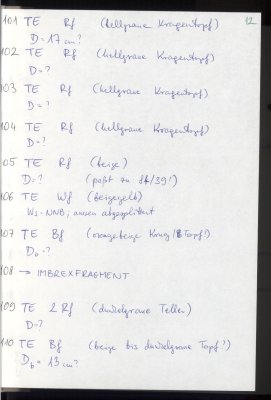 12
101 TE Rf (hellgraue Kragentopf)
D=17 cm?
102 TE Rf (hellgraue Kragentopf)
D=?
103 TE Rf (hellgraue Kragentopf)
D=?
104 TE Rf (hellgraue Kragentopf)
D=?
105 TE Rf (beige)
D=? (paßt zu 84/39!)
106 TE Wf (beigegelb)
Ws=NNB; aussen abgesplittert
107 TE Bf (orangebeige Krug/Topf?)
Db=?
108 → IMBREXFRAGMENT
109 TE 2 Rf (dunkelgraue Teller)
D=?
110 TE Bf (beige bis dunkelgraue Topf?)
Db=13 cm?